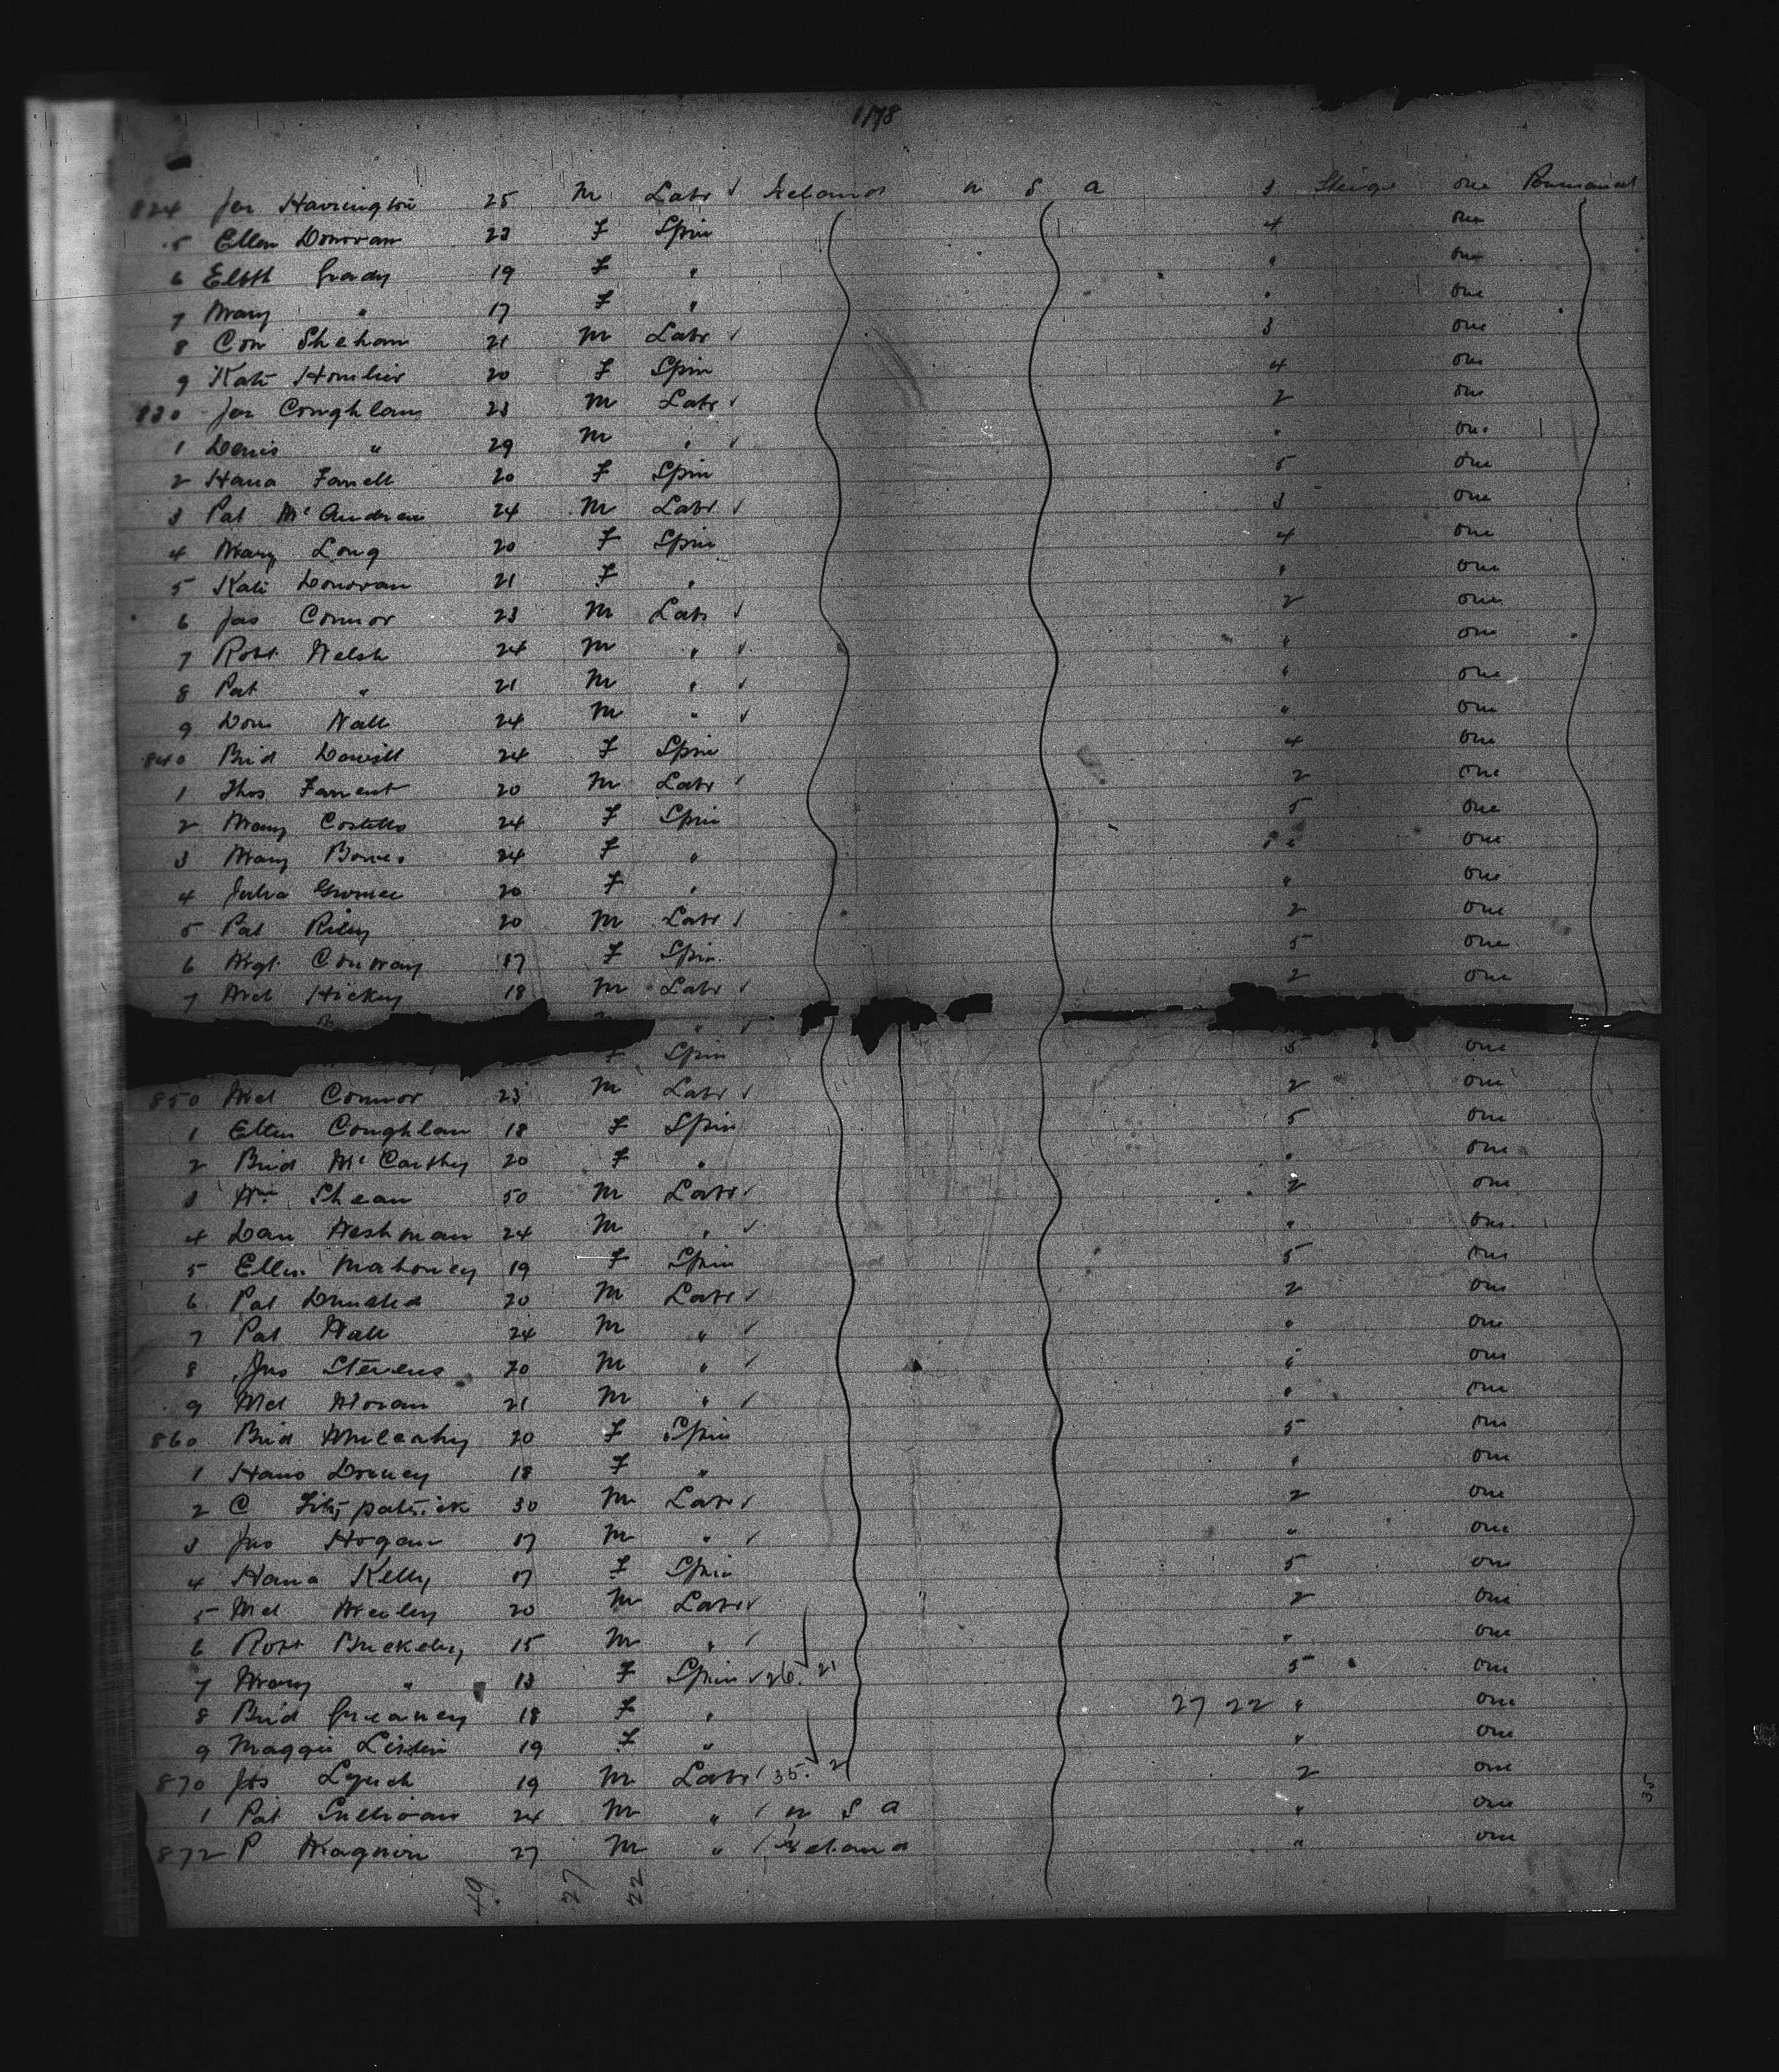 1178
824 Jer Harrington 25 M Labr ✓ Ireland U S A 3 Steige one Permanent
5 Ellen Donovan 23 F Spin 4 one
6 Elbth Grady 19 F " " one
7 Mary " 17 F " " one
8 Con Shehan 21 M Labr ✓ 3 one
9 Kate 20 F Spin 4 one
830 Jer Coughlan 23 M Labr ✓ 2 one
1 Denis " 29 M " ✓ " one
2 Hana Farrell 20 F Spin 5 one
3 Pat McAndrew 24 M Labr ✓ 3 one
4 Mary Long 20 F Spin 4 one
5 Kate Donovan 21 F " " one
6 Jas Connor 23 M Labr ✓ 2 one
7 Robt Welsh 24 M " ✓ " one
8 Pat " 21 M " ✓ " one
9 Dom Wall 24 M " ✓ " one
840 Brid 24 F Spin 4 one
1 Thos 20 M Labr ✓ 2 one
2 Mary Costello 24 F Spin 5 one
3 Mary 24 F " " one
4 Julia 20 F " " one
5 Pat Riley 20 M Labr ✓ 2 one
6 Mgt Conway 17 F Spin 5 one
7 Mcl Hickey 18 M Labr ✓ 2 one
" ✓
F Spin 5 one
850 Mcl Connor 23 M Labr ✓ 2 one
1 Ellen Coughlan 18 F Spin 5 one
2 Brid McCarthy 20 F " " one
3 Wm Shean 50 M Labr ✓ 2 one
4 Dan 24 M " ✓ " one
5 Ellen Mahoney 19 F Spin 5 one
6 Pat 20 M Labr ✓ 2 one
7 Pat Wall 24 M " ✓ " one
8 Jno Stevens 20 M " ✓ " one
9 Mcl Moran 21 M " ✓ " one
860 Brid Mulcahy 20 F Spin 5 one
1 Hano 18 F " " one
2 C Fitzpatrick 30 M Labr ✓ 2 one
3 Jno Hogan 17 M " ✓ " one
4 Hana Kelly 17 F Spin 5 one
5 Mcl 20 M Labr ✓ 2 one
6 Robt Buckeley 15 M " ✓ " one
7 Mary " 13 F Spin ✓ 26. 21 5 one
8 Brid Greaney 18 F " 27 22 " one
9 Maggie 19 F " " one
870 Jas Lynch 19 M Labr ✓ 35. 2 2 one
1 Pat Sullivan 24 M " ✓ U S A " one
872 P 27 M " ✓ Ireland " one
49 27 22
35